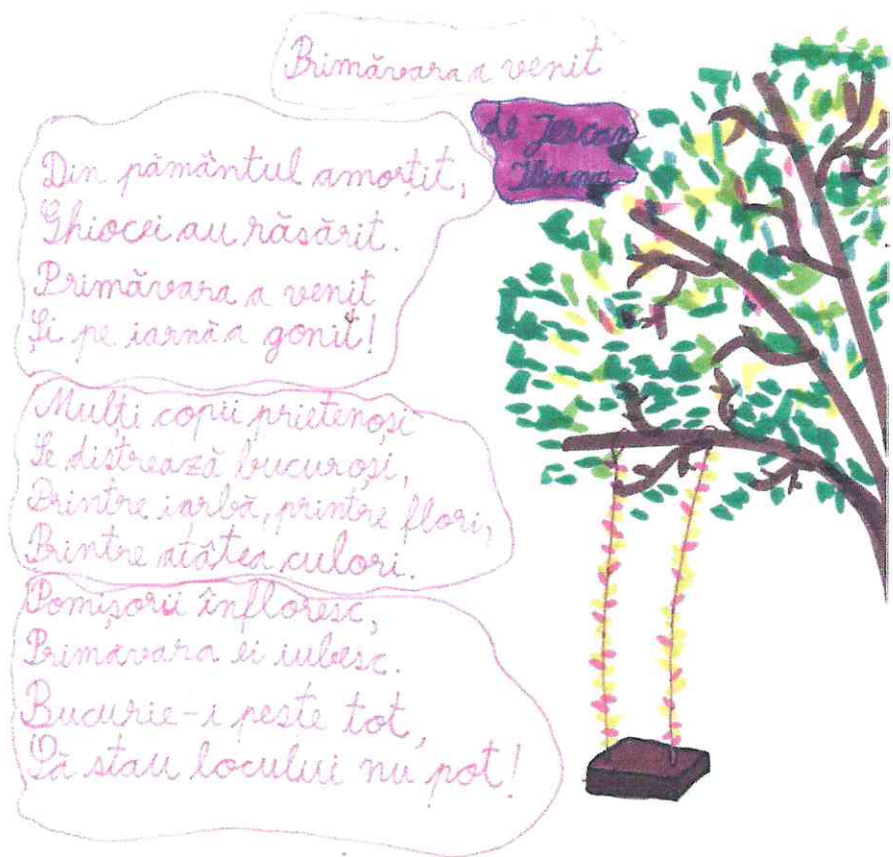 Primăvara a venit
de Jercan
Ileana
Din pământul amorțit,
Ghiocei au răsărit.
Primăvara a venit
Și pe iarnă a gonit!
Mulți copii prietenoși
Se distrează bucuroși,
Printre iarbă, printre flori,
Printre atâtea culori.
Pomișorii înfloresc,
Primăvara ei iubesc.
Bucurie-i peste tot,
Să stau locului nu pot!